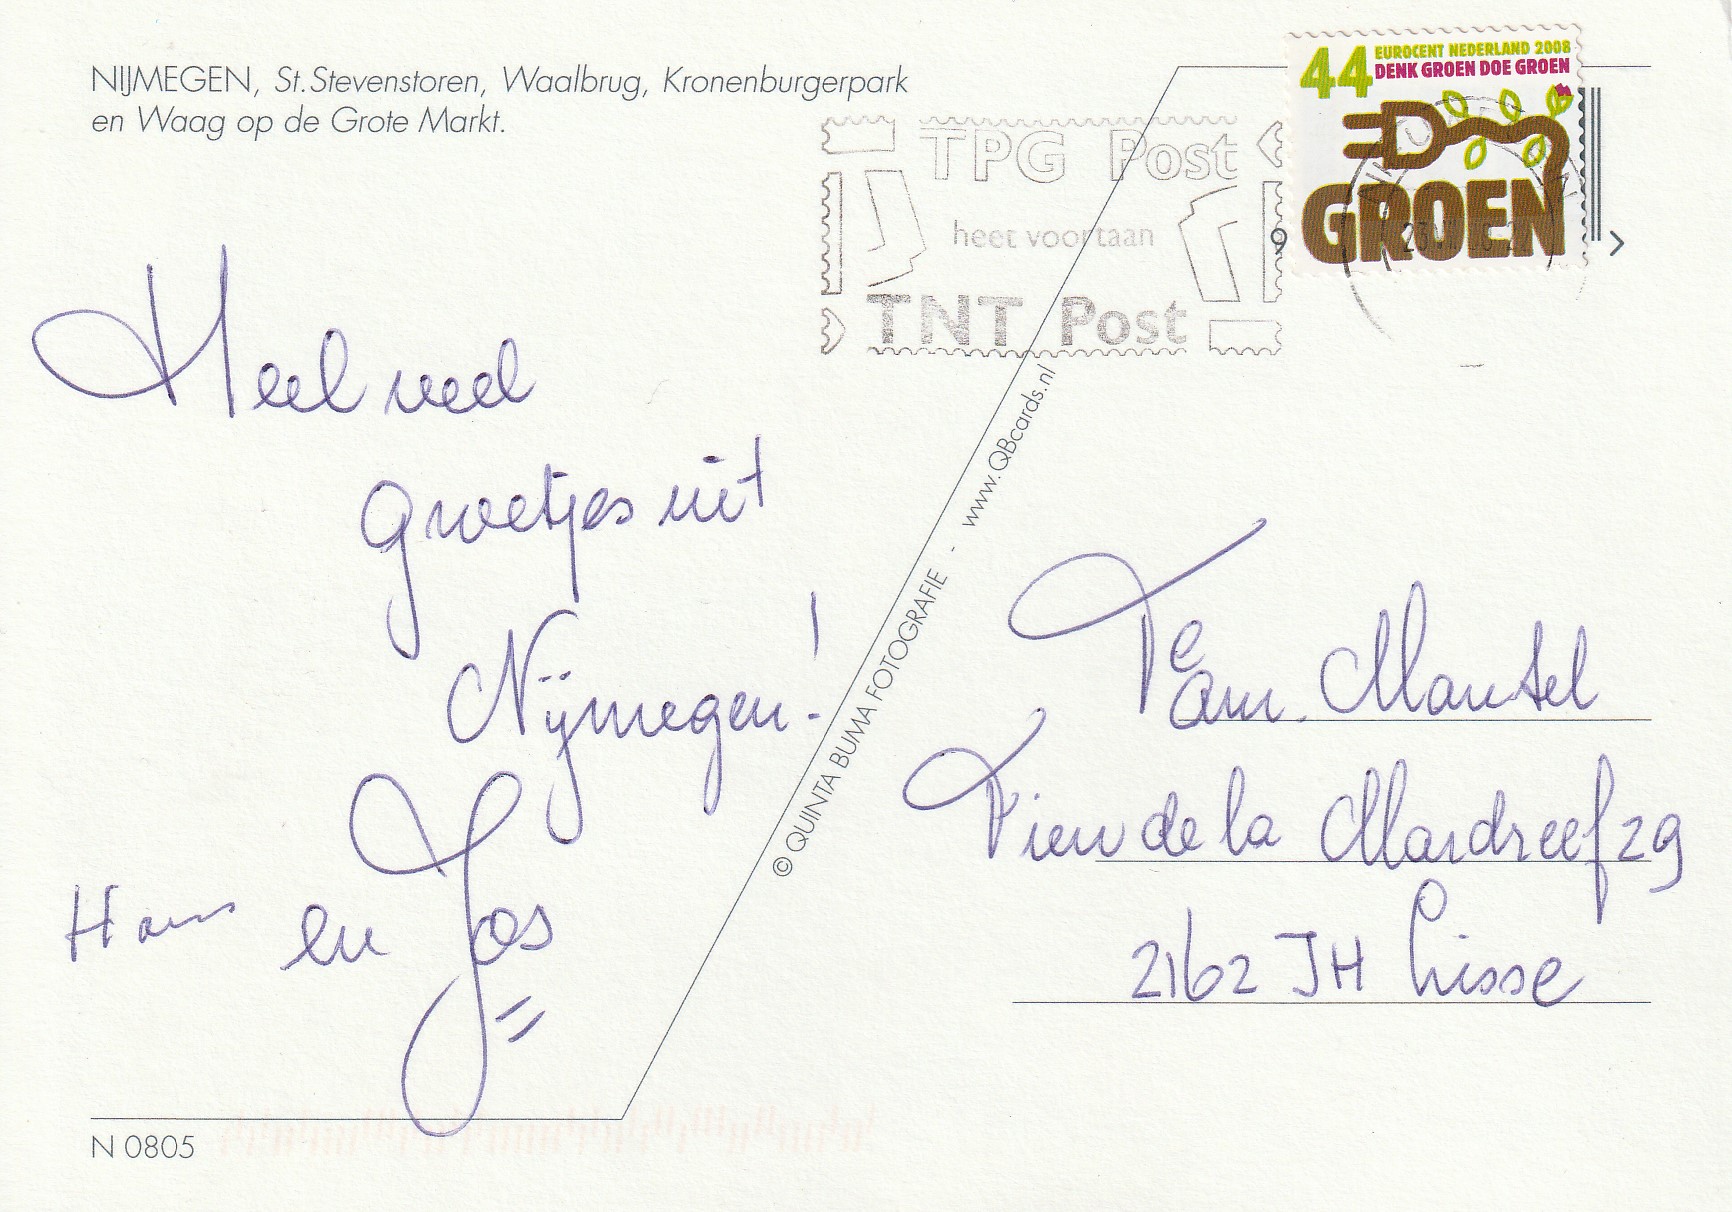 NIJMEGEN, St.Stevenstoren, Waalbrug, Kronenburgerpark
en Waag op de Grote Markt.
44 EUROCENT NEDERLAND 2008
DENK GROEN DOE GROEN
GROEN
TPG Post
heet voortaan
TNT Post
Heel veel
groetjes uit
Nijmegen!
Hans en Jos
© QUINTA BUMA FOTOGRAFIE - www.QBcards.nl
Fam. Mantel
de la Mardreef 29
2162 JH Lisse
N 0805